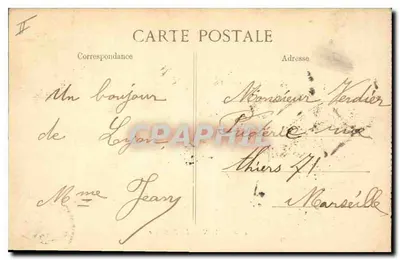 II
CARTE POSTALE
Correspondance
Adresse
Un bonjour
de Lyon
Mme Jean
Monsieur Verdier
rue
thiers 71
Marseille
CPAPHIL